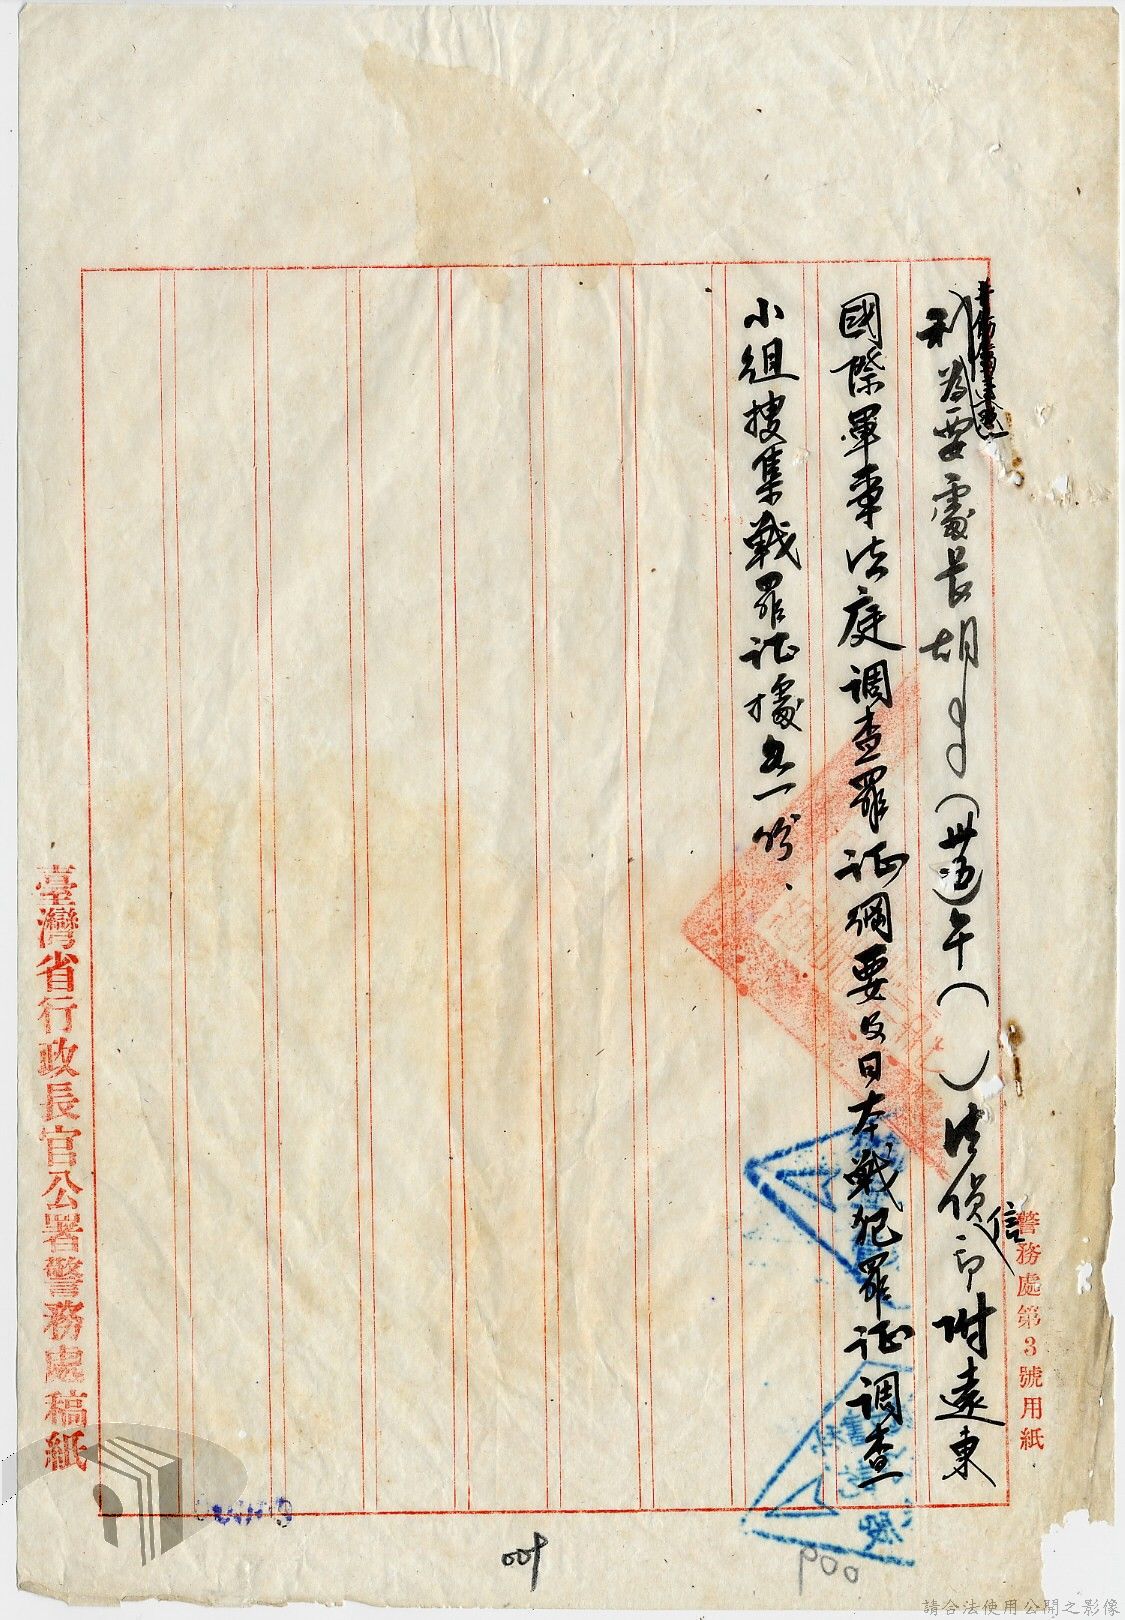 利為要處長胡(卅五)午()法偵印附遠東
信
國際軍事法庭調查罪证綱要及日本戰犯罪证調查
小组搜集戰罪证據各一份.
警務處第3號用紙
臺灣省行政長官公署警務處稿紙
009
900
請合法使用公開之影像